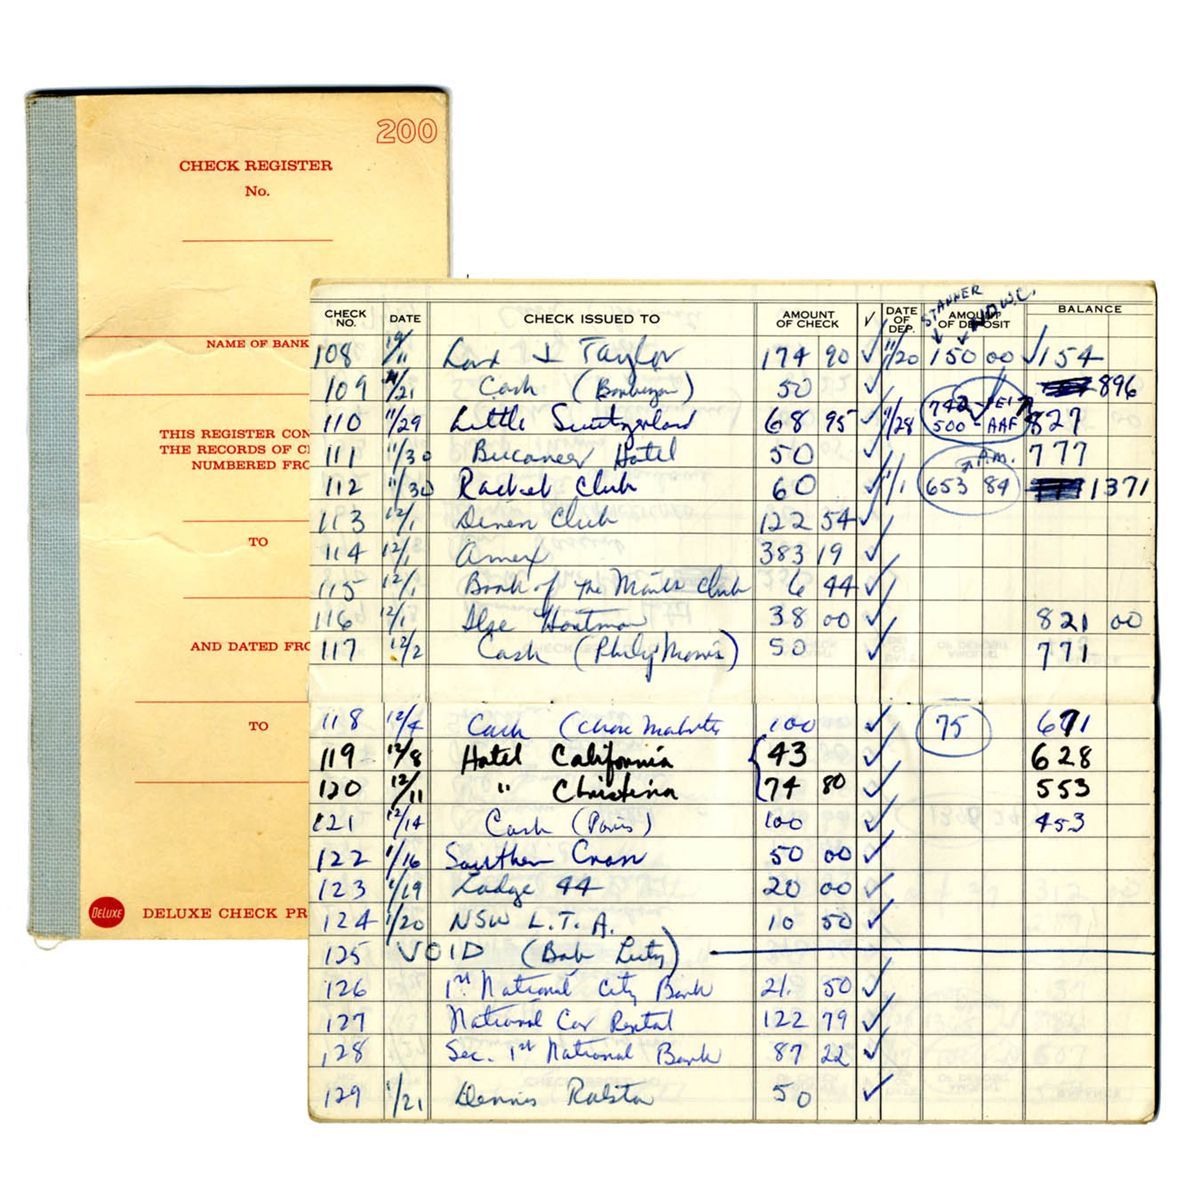 200
CHECK REGISTER
No.
NAME OF BANK
THIS REGISTER CON
THE RECORDS OF C
NUMBERED FRO
TO
AND DATED FRO
TO
DELUXE
DELUXE CHECK PR
STANNER N.D.W.C.
CHECK NO. DATE CHECK ISSUED TO AMOUNT OF CHECK √ DATE OF DEP. AMOUNT OF DEPOSIT BALANCE
108 Lord & Taylor 174 90 ✓ 11/20 150 00 ✓ 154
109 11/21 Cash ( 50 ✓ 896
110 11/29 Little Switzerland 68 95 ✓ 11/28 742 500 - AAF 827
111 11/30 Buccaneer Hotel 50 ✓ 777
112 11/30 Racket Club 60 ✓ 653 84 A.M. 1371
113 12/1 Diners Club 122 54 ✓
114 12/1 Amex 383 19 ✓
115 12/1 Book of the Month Club 6 44 ✓
116 12/1 38 00 ✓ 821 00
117 12/2 Cash (Philip Morris) 50 ✓ 771
118 12/4 Cash (Chase Manhattan 100 ✓ 75 671
119 12/8 Hotel California 43 ✓ 628
120 12/11 " Christina 74 80 ✓ 553
121 12/14 Cash (Paris) 100 ✓ 453
122 1/16 Southern Cross 50 00 ✓
123 1/19 Lodge 44 20 00 ✓
124 1/20 NSW L.T.A. 10 50 ✓
125 VOID (Bob
126 1st National City Bank 21. 50 ✓
127 National Car Rental 122 79 ✓
128 Sec. 1st National Bank 87 22 ✓
129 1/21 Dennis Ralston 50 ✓